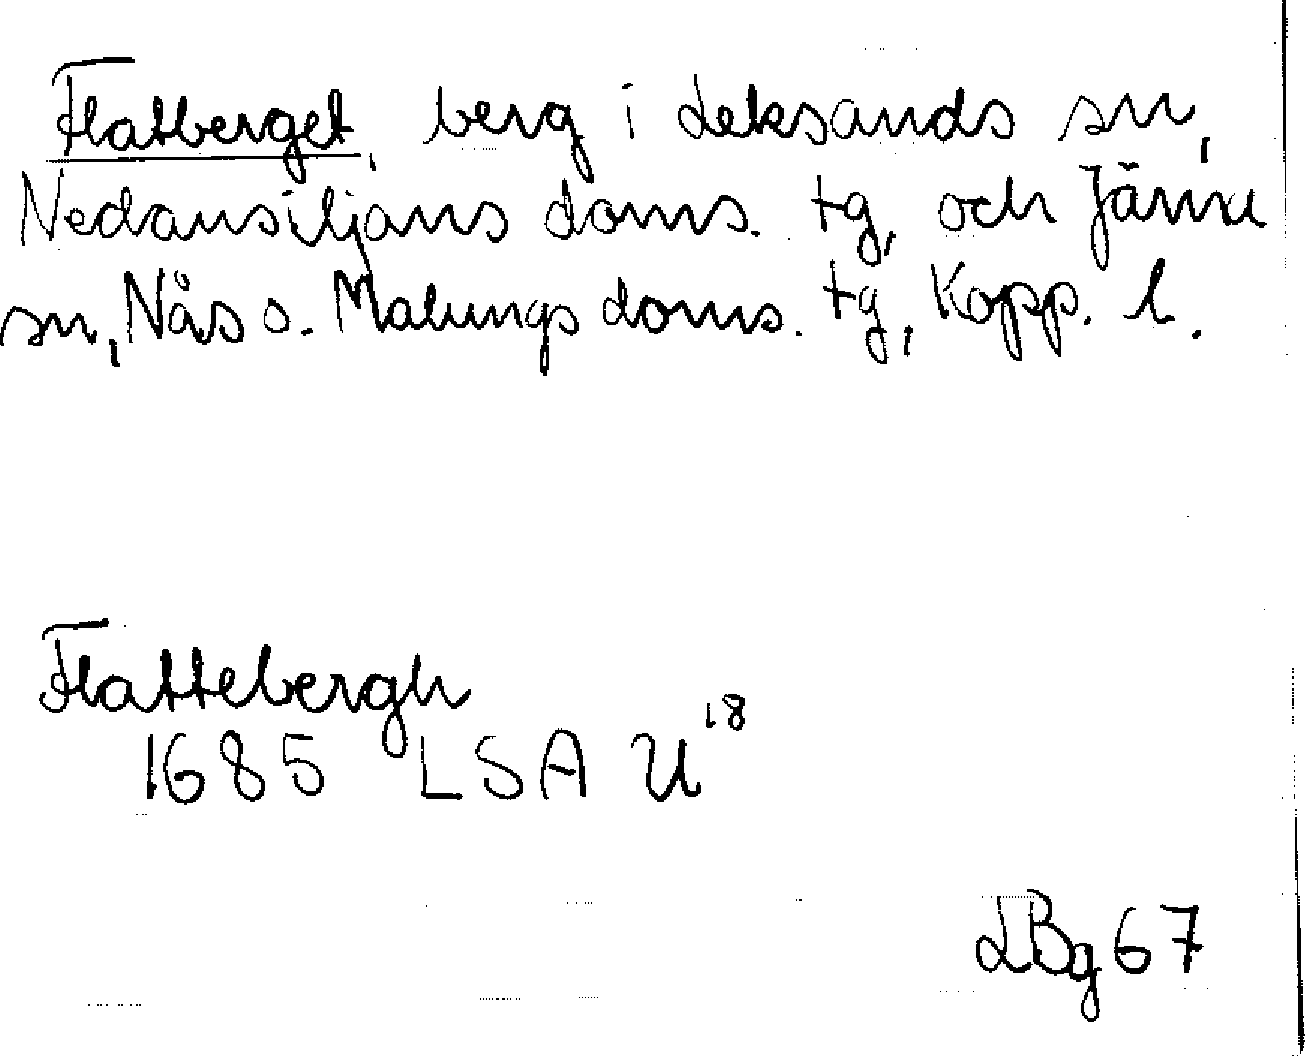 Flatberget, berg i Leksands sn,
Nedansiljans doms. tg, och Järna
sn, Nås o. Malungs doms. tg, Kopp. l.
Flattebergh
1685 LSA U¹⁸
LBg 67